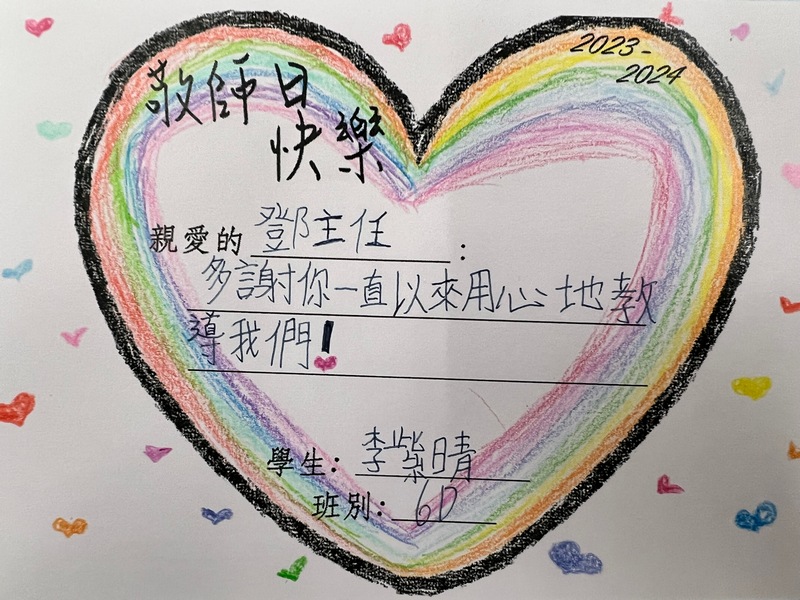 敬師日
快樂
2023-
2024
親愛的 鄧主任 :
多謝你一直以來用心地教
導我們!
學生: 李紫晴
班別: 6D